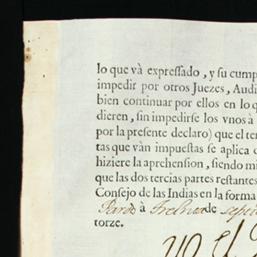 lo que và expressado, y su cump
impedir por otros Juezes, Audi
bien continuar por ellos en lo q
dieren, sin impedirse los vnos à
por la presente declaro) que el ter
tas que vàn impuestas se aplica
hiziere la aprehension, siendo mi
que las dos tercias partes restantes
Consejo de las Indias en la forma
Pardo à de septi
torze.